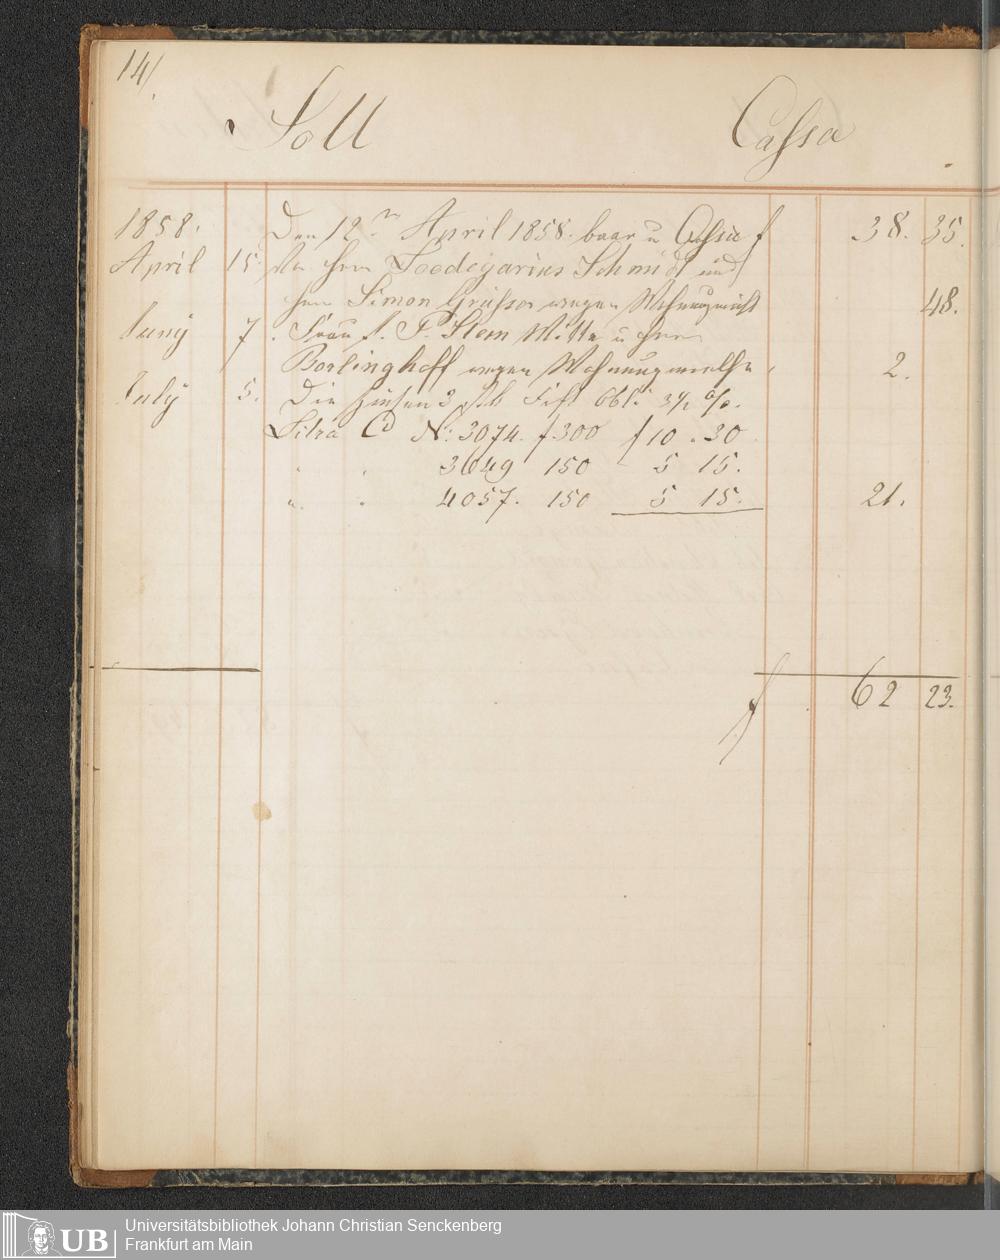 14/.
Soll Cassa
1858. Den 12n April 1858. baar u Cassa f 38. 35.
April 15. An Herrn Leodegarius Schmidt und
Herrn Simon wegen 48.
Juny 7. Frau P. Stern Witte u Herrn
Borlinghoff wegen 2.
July 5. Die Zinsen 3 Stk Obl. 3½ %.
Litra Cd N: 3074. f 300 f 10. 30.
3649 150 5 15.
" 4057. 150 5 15. 21.
f 62 23.
UB Universitätsbibliothek Johann Christian Senckenberg
Frankfurt am Main